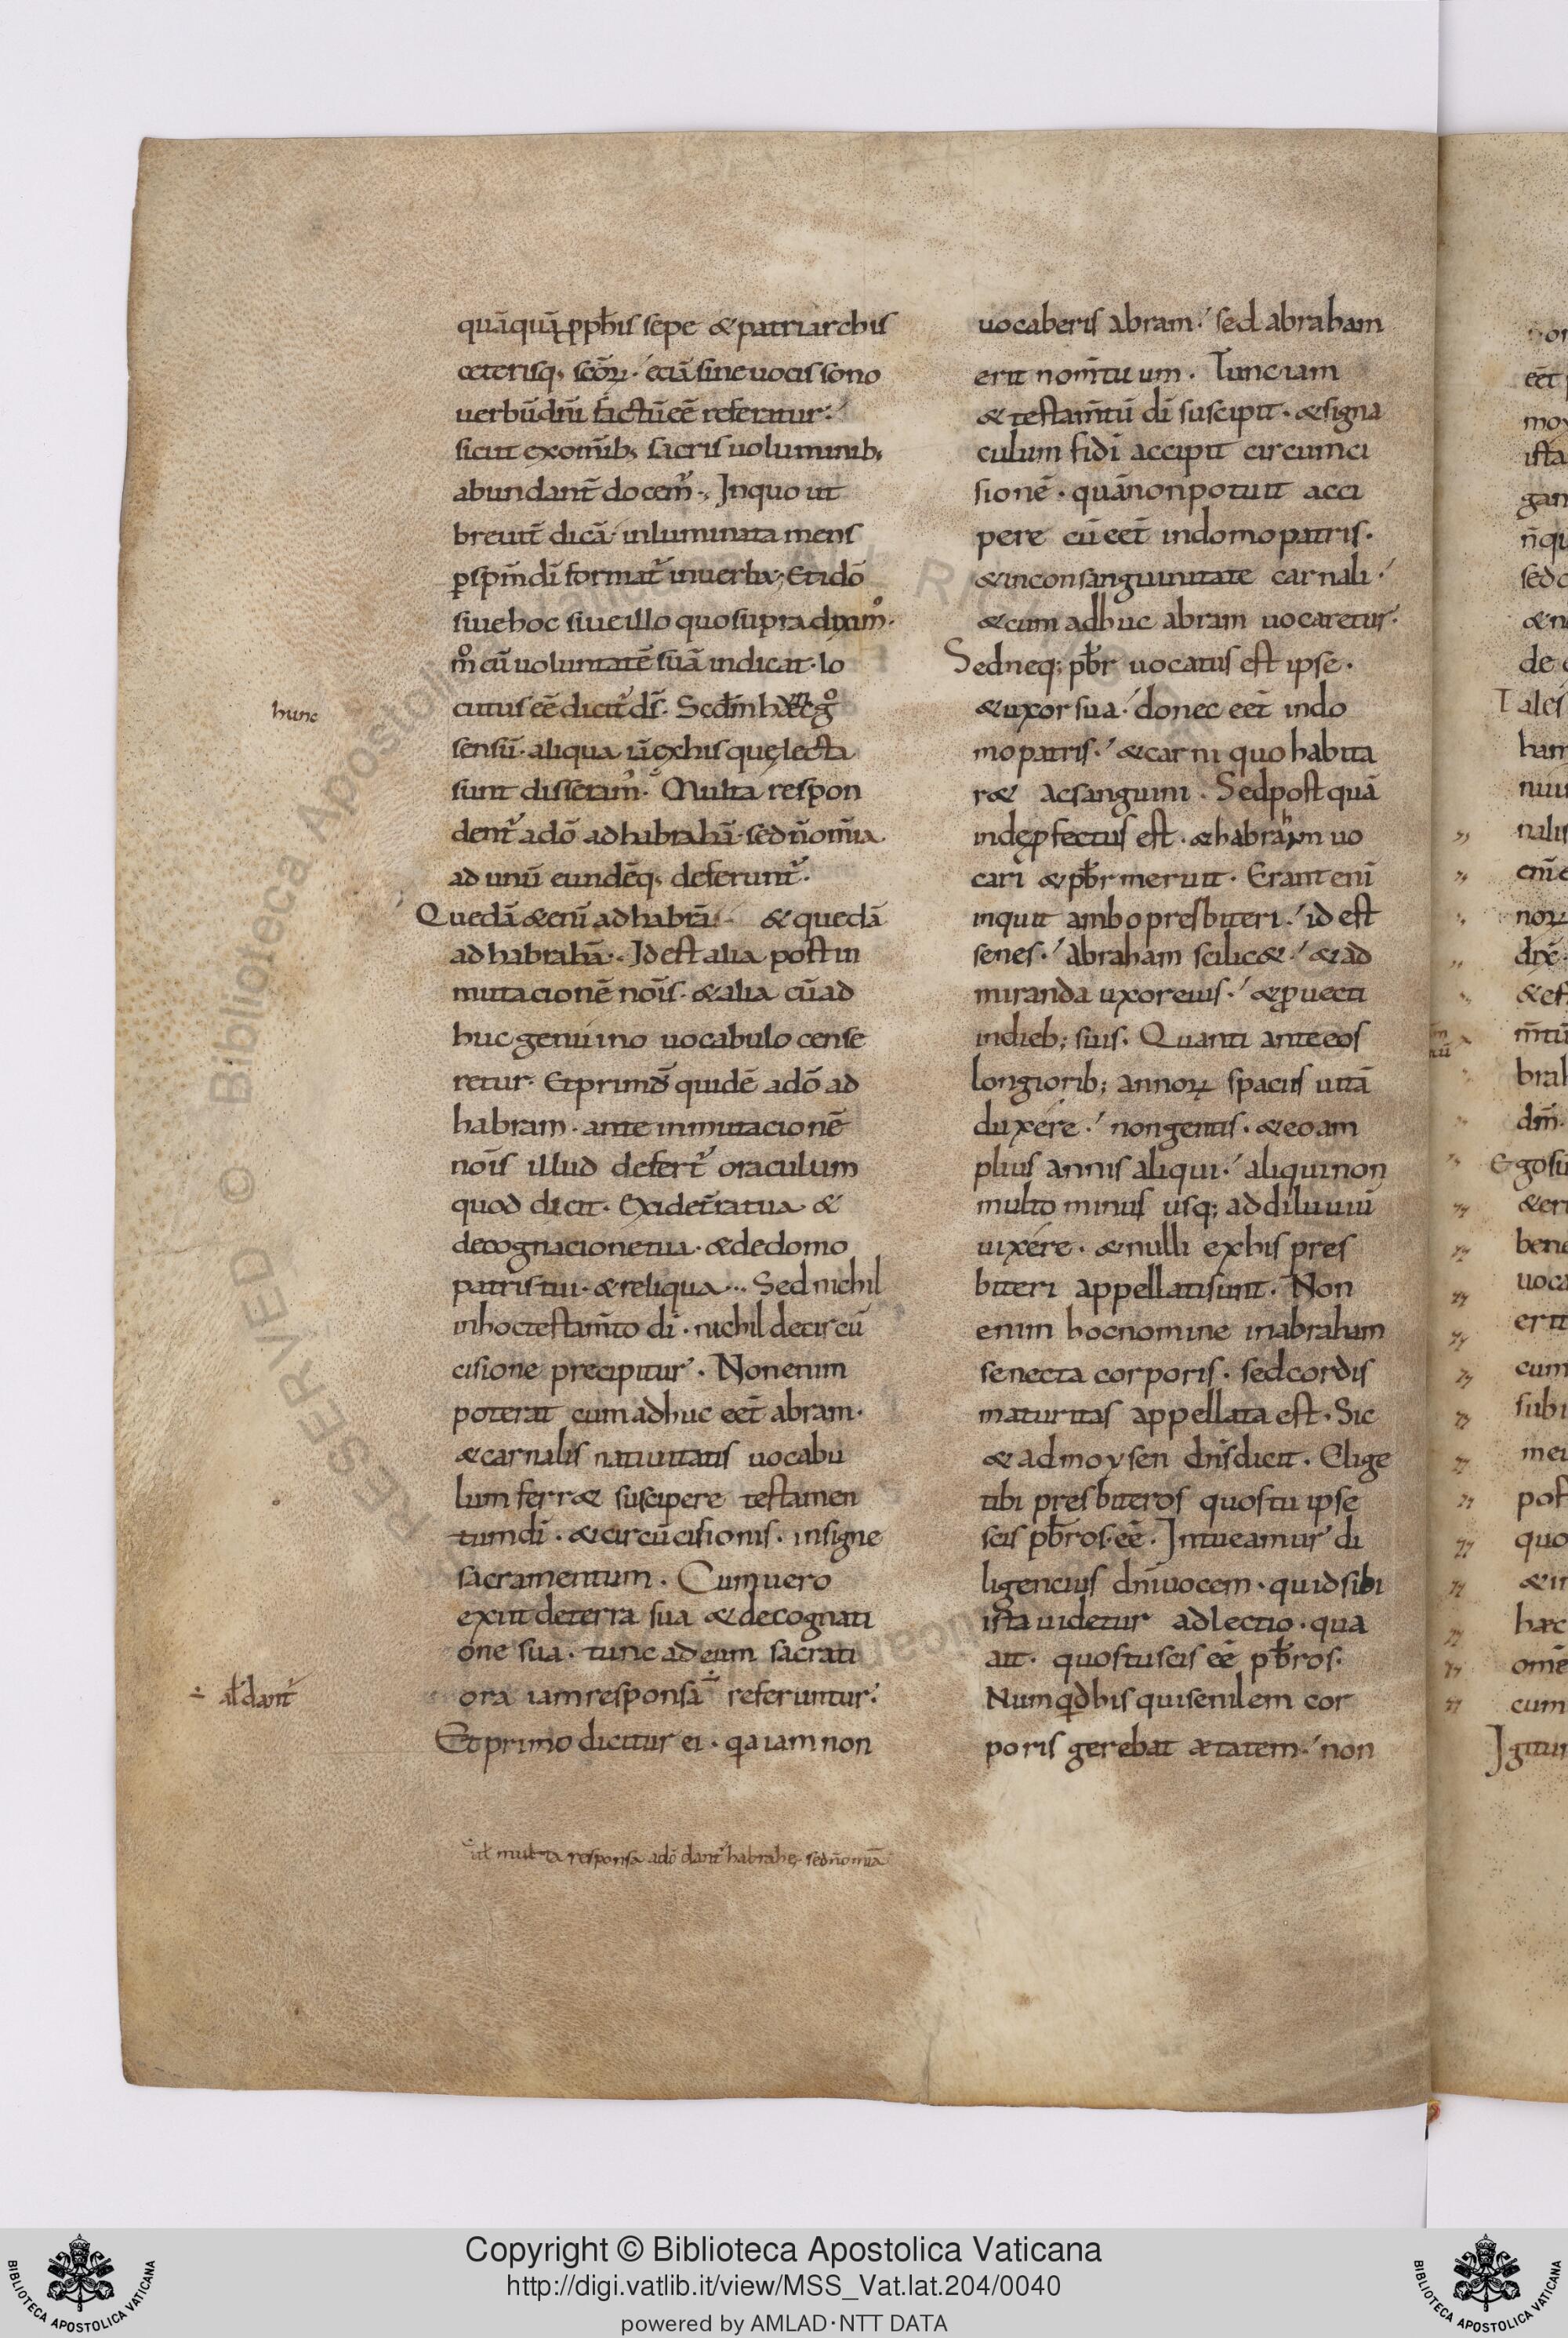 quāquā ꝓph̄is sepe & patriarchis
ceterisq; sc̄oꝝ · eciā sine uocis sono
uerbū dn̄i factū eē referatur·
sicut ex om̄ib; sacris uoluminib;
abundant̄ docem̄·, In quo ut
breuit̄ dicā· inluminata mens
ꝑ sp̄m dī format̄ in uerba; Et idō
siue hoc siue illo quo supra diximꝰ·
m̊ cū uoluntatē suā indicat· lo
cutus eē dicit̄ ds̄· Scd̄m hęc g̊
sensū· aliqua ū ex his quę lecta
sunt disseram̄· Multa respon
dent̄ adō ad habrahā· sed n̄ om̄ia
ad unū eundēq; deferunt̄·
Quedā &enī ad habrā· & quedā
ad habrahā· Id est alia post in
mutacionē nōis· & alia cū ad
huc genuino uocabulo cense
retur· Et primū quidē adō ad
habram· ante inmutacionē
nōis illud defert̄ oraculum
quod dicit· Exi de t̄ra tua· &
de cognacione tua· & de domo
patris tui· & reliqua··· Sed nichil
in hoc testam̄to dī· nichil de circū
cisione precipitur· Non enim
poterat cum adhuc eēt abram·
& carnalis natiuitatis uocabu
lum ferr& suscipere testamen
tum dī· & circūcisionis· insigne
sacramentum· Cum uero
exiit de terra sua & de cognati
one sua· tunc ad eum sacrati
ora iam responsa referuntur·
Et primo dicitur ei· qa iam non
hunc
ał dant̄
ał multa responsa adō dant̄ habrahę· sed n̄ omīa
uocaberis abram· sed abraham
erit nom̄ tuum· Tunc iam
& testam̄tū dī suscipit· & signa
culum fidī accipit circumci
sionē· quā non potuit acci
pere cū eēt in domo patris·
& in consanguinitate carnali·
& cum adhuc abram uocaretur·
Sed neq; pb̄r uocatus est ipse·
& uxor sua· donec eēt in do
mo patris· & carni quo habita
r& ac sanguini· Sed postquā
inde ꝑfectus est· & habraham uo
cari & pb̄r meruit· Erant enī
inquit ambo presbiteri· id est
senes· abraham scilic&· & ad
miranda uxor eius· & ꝓuecti
in dieb; suis· Quanti ante eos
longiorib; annoꝝ spaciis uitā
duxere· nongentis· & eo am
plius annis aliqui· aliqui non
multo minus usq; ad diluuiū
uixere· & nulli ex his pres
biteri appellati sunt· Non
enim hoc nomine in abraham
senecta corporis· sed cordis
maturitas appellata est· Sic
& ad moysen dn̄s dicit· Elige
tibi presbiteros quos tu ipse
scis pb̄ros eē· Intueamur di
ligencius dn̄i uocem· quid sibi
ista uidetur adlectio· qua
ait· quos tu scis eē pb̄ros·
Numqd his qui senilem cor
poris gerebat ætatem· non
Copyright © Biblioteca Apostolica Vaticana
http://digi.vatlib.it/view/MSS_Vat.lat.204/0040
powered by AMLAD·NTT DATA